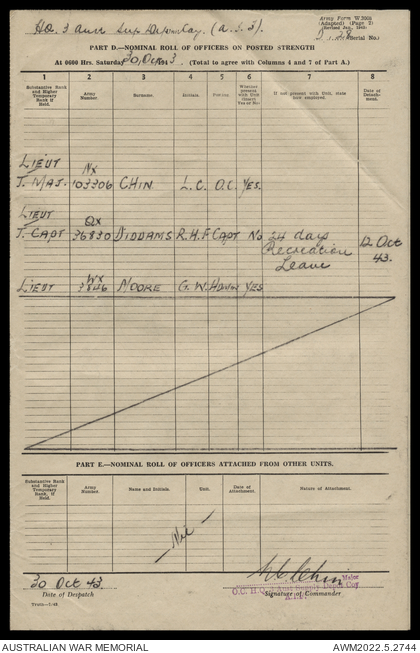 HQ 3 Aust Sup Depot Coy. (A.I.F).
Army Form W.3008
(Adapted) (Page 2)
Serial No.: 28
PART D.—NOMINAL ROLL OF OFFICERS ON POSTED STRENGTH
At 0600 Hrs. Saturday 30, Oct 1943. (Total to agree with Columns 4 and 7 of Part A.)
1 2 3 4 5 6 7 8
Substantive Rank and Higher Temporary Rank if Held. Army Number. Surname. Initials. Posting. Whether present with Unit (Insert Yes or No) If not present with Unit, state how employed. Date of Detachment.
LIEUT
T. MAJ. NX 103306 CHIN L. C. O.C. YES.
LIEUT
T. CAPT QX 36830 DIDDAMS R. H. F CAPT No 24 days Recreation Leave 12 Oct 43.
LIEUT WX 3846 MOORE G. W. YES
PART E.—NOMINAL ROLL OF OFFICERS ATTACHED FROM OTHER UNITS.
Substantive Rank and Higher Temporary Rank, if Held. Army Number. Name and Initials. Unit. Date of Attachment. Nature of Attachment.
— Nil —
30 Oct 43.
Date of Despatch
Major
O.C. H.Q. 3 Aust Supply Depot Coy
A.I.F.
Signature of Commander
AUSTRALIAN WAR MEMORIAL
AWM2022.5.2.2744